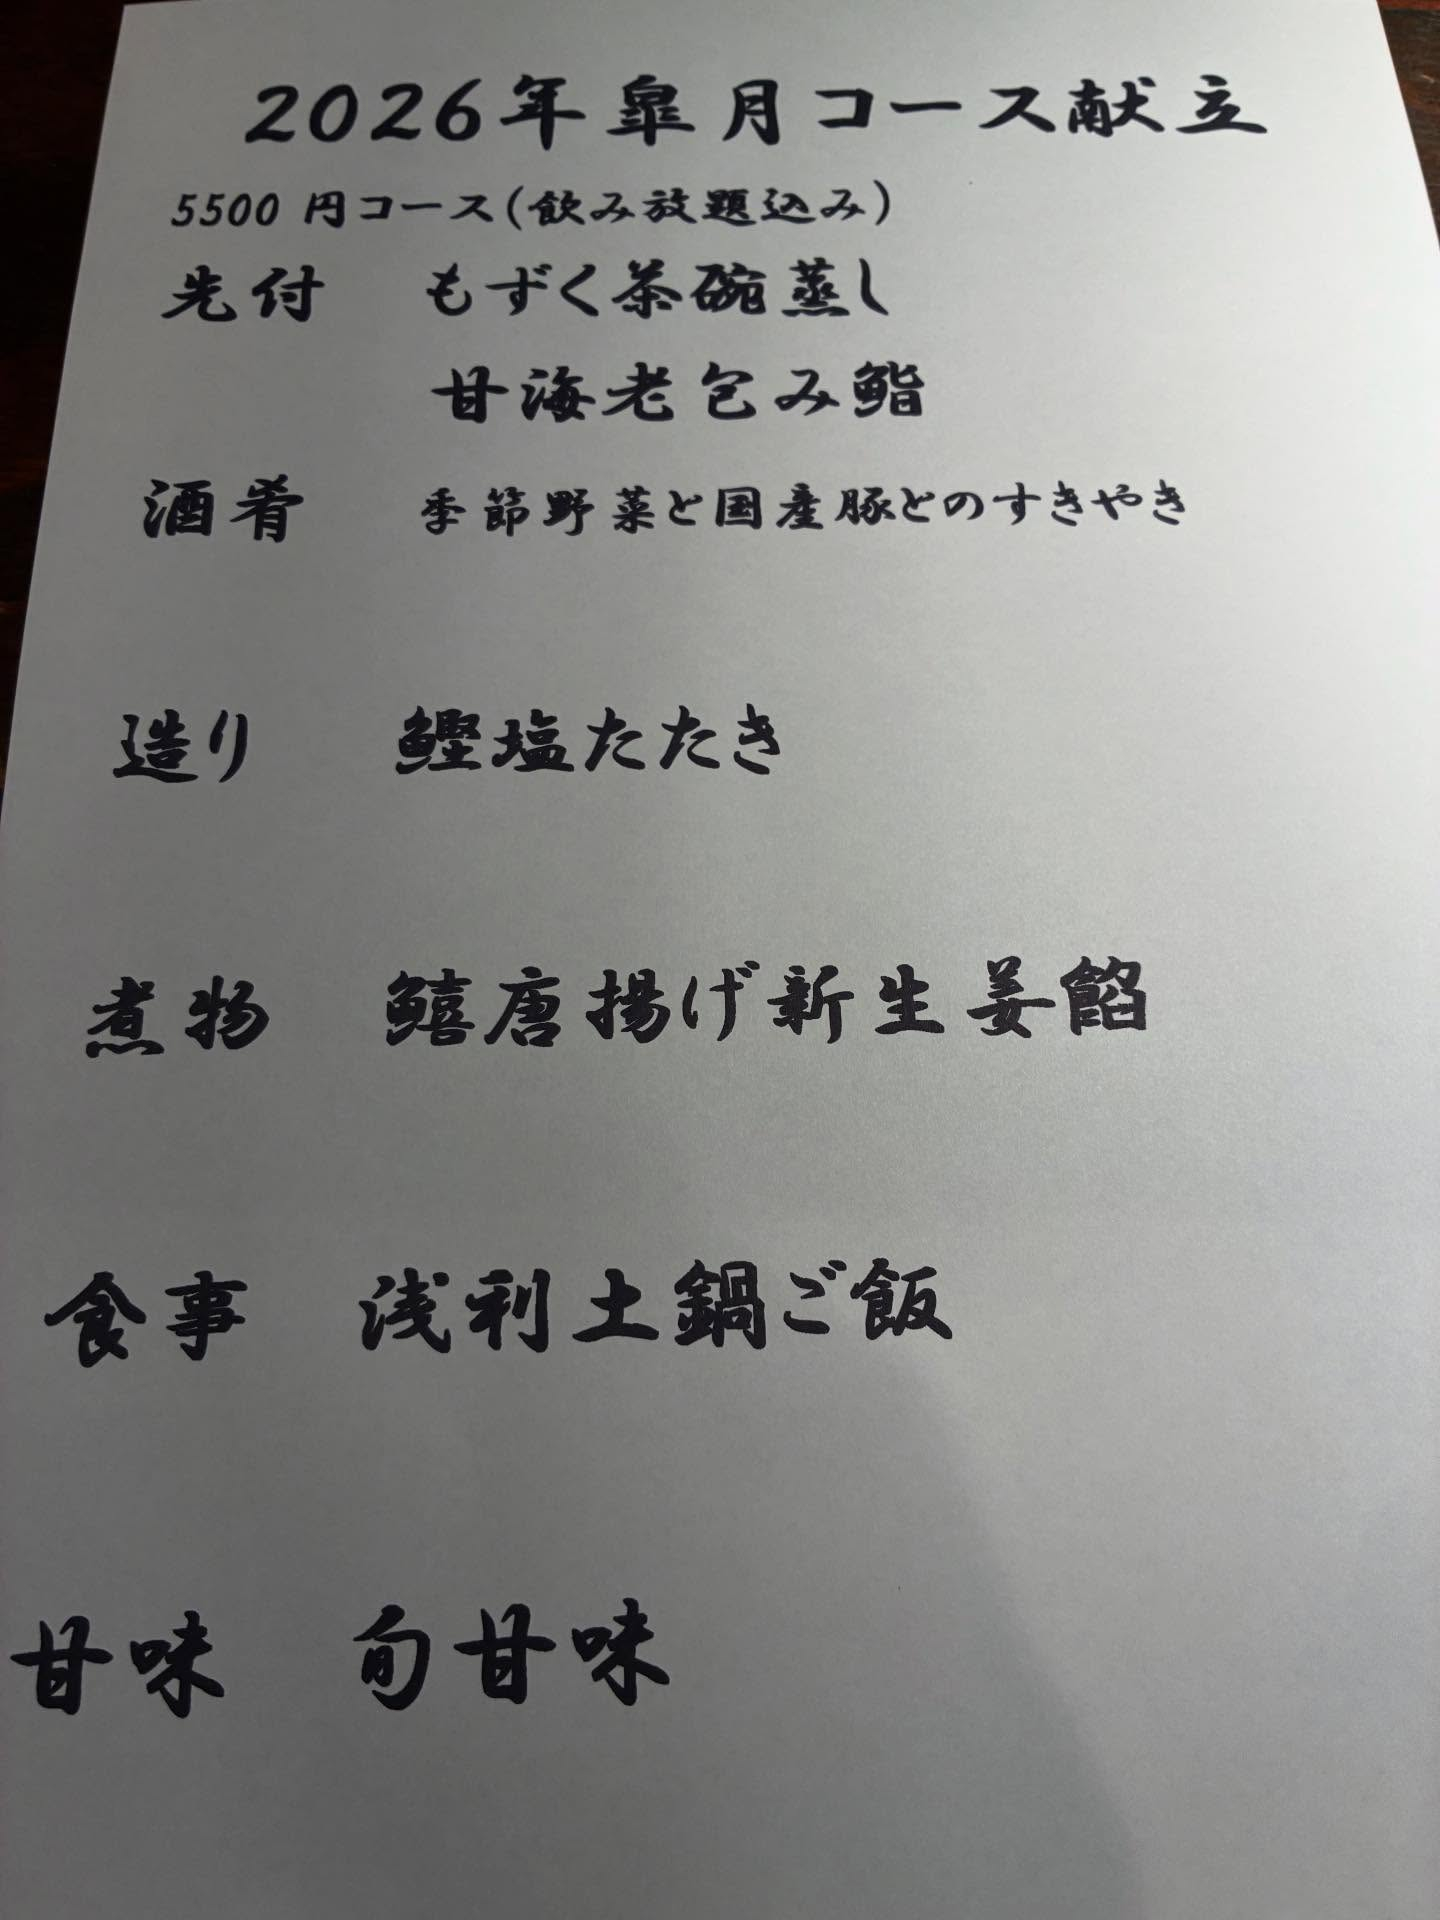 2026年皐月コース献立
5500 円コース(飲み放題込み)
先付 もずく茶碗蒸し
甘海老包み鮨
酒肴 季節野菜と国産豚とのすきやき
造り 鰹塩たたき
煮物 鱚唐揚げ新生姜餡
食事 浅利土鍋ご飯
甘味 旬甘味